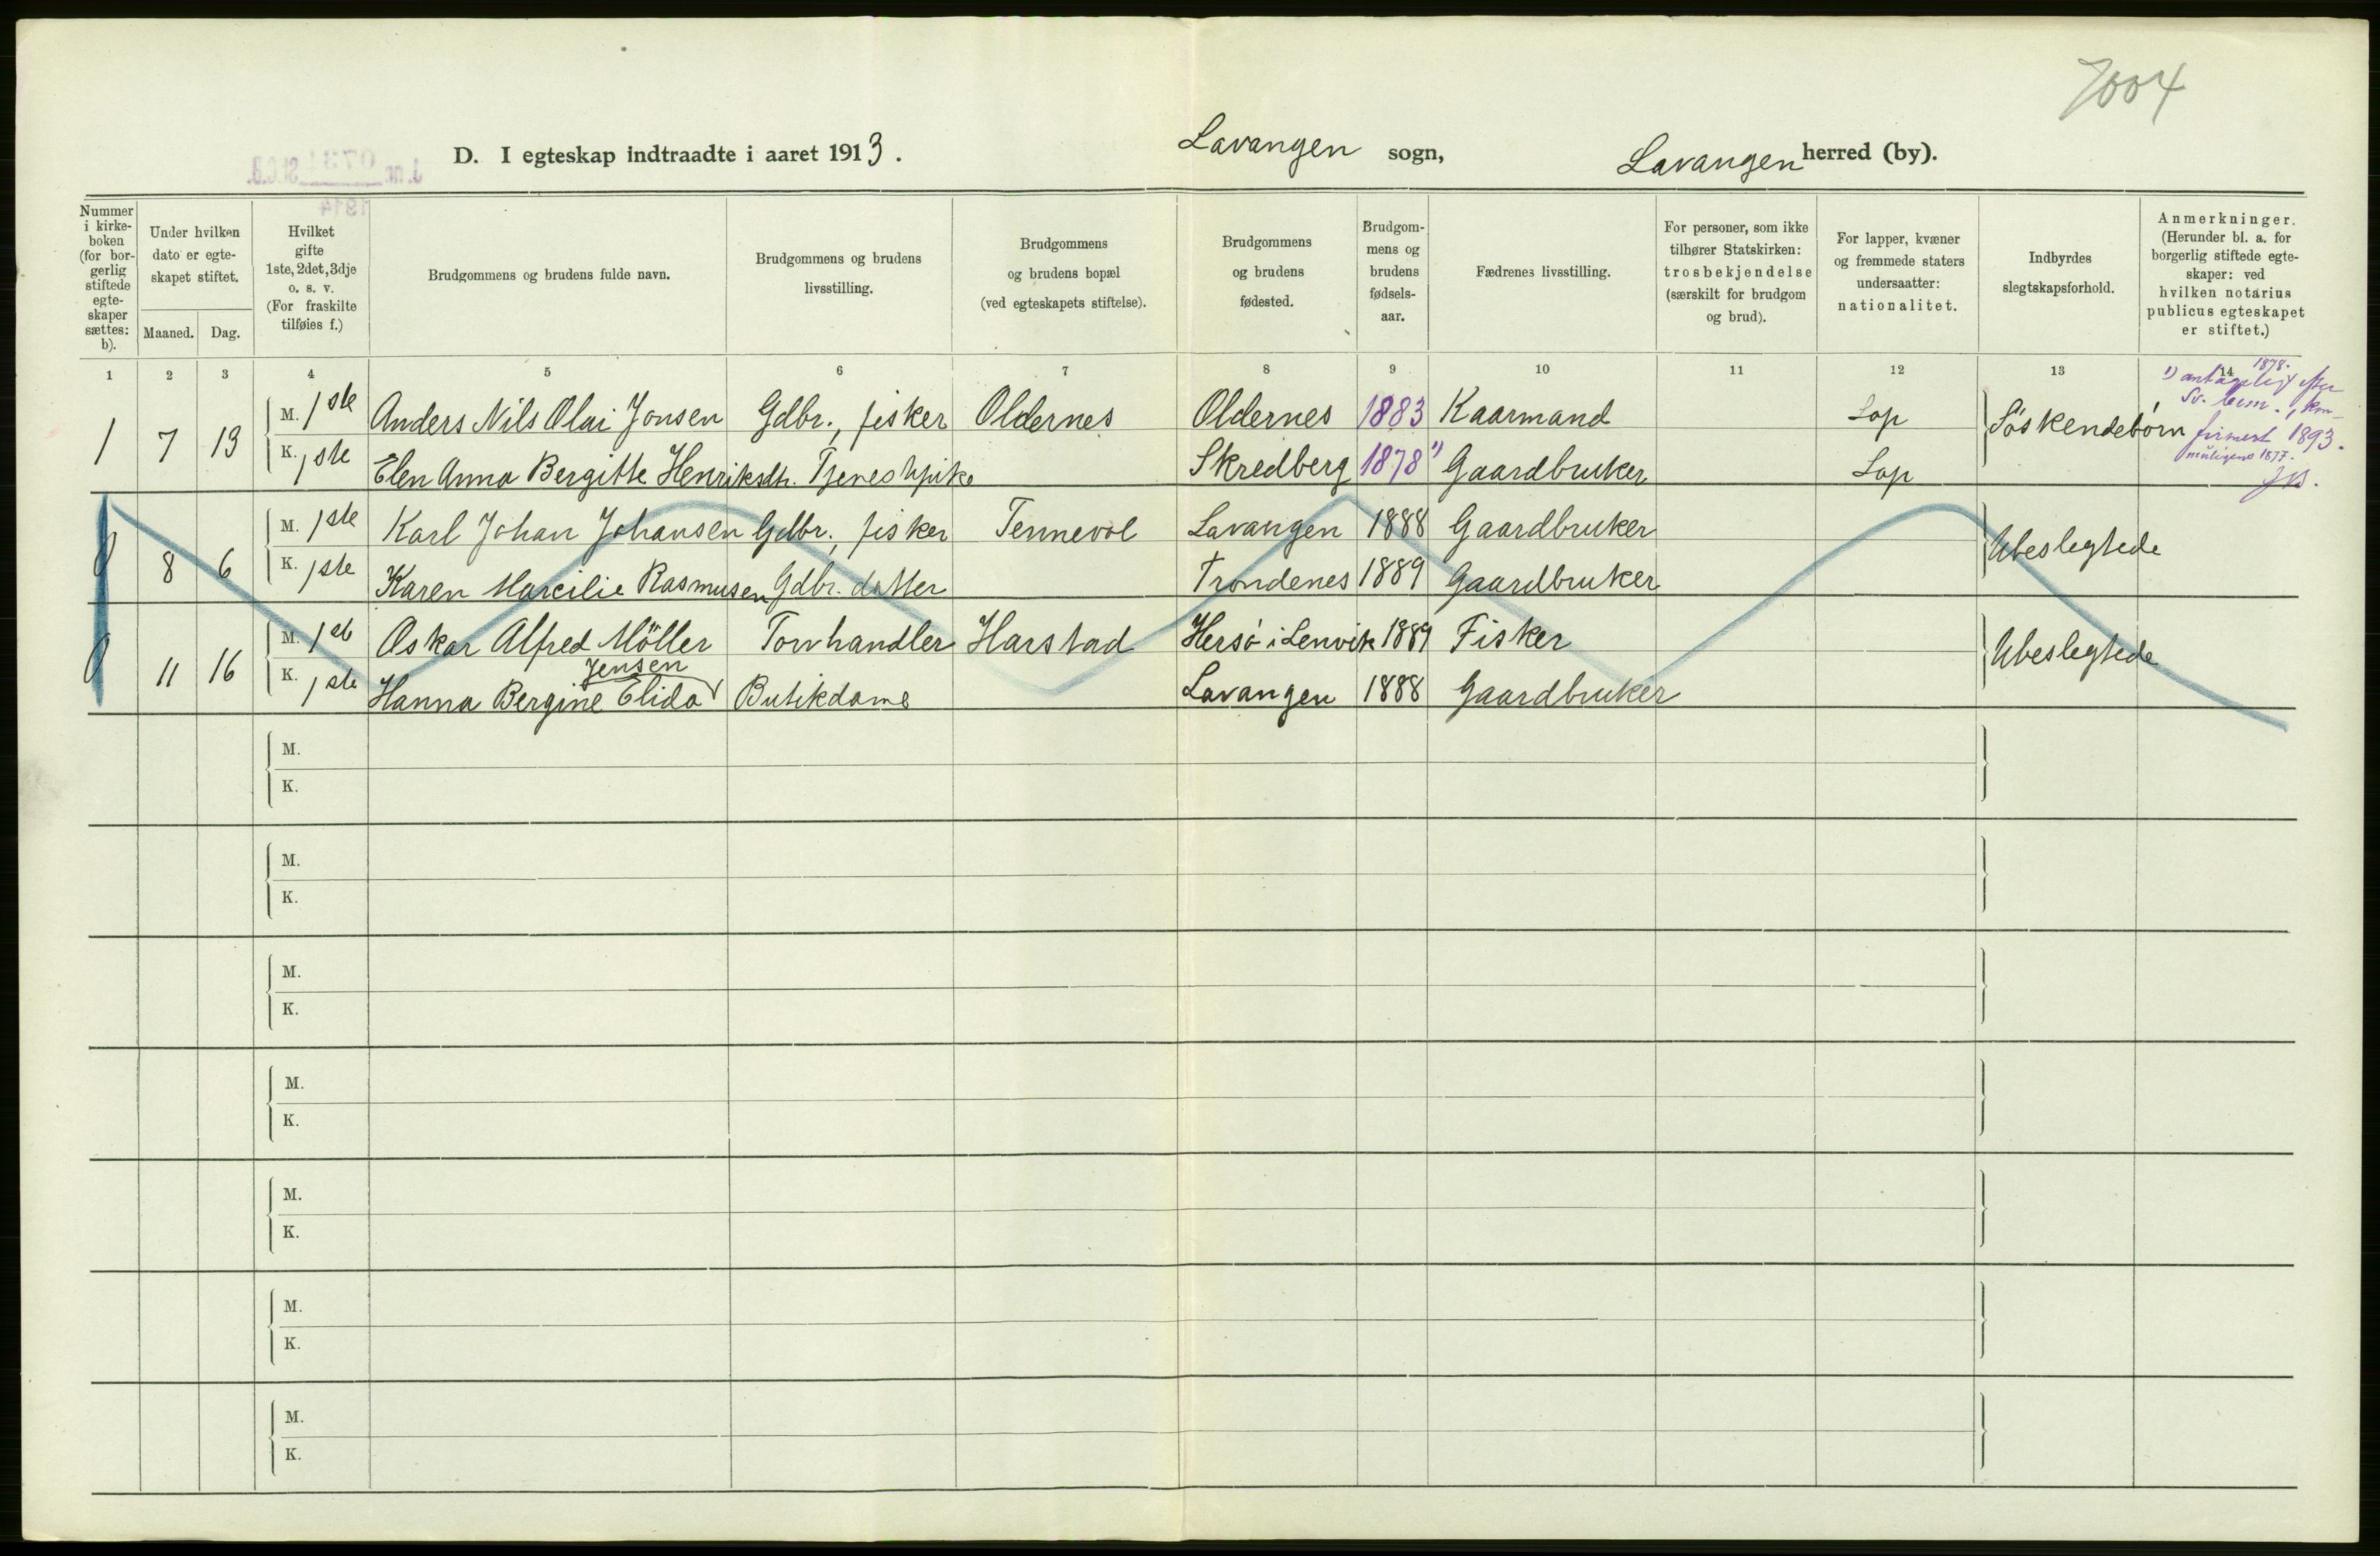 7004
D. I egteskap indtraadte i aaret 1913. Lavangen sogn, Lavangen herred (by).
Nummer i kirke-boken (for bor-gerlig stiftede egte-skaper sættes: b).
Under hvilken dato er egte-skapet stiftet.
Maaned. Dag.
Hvilket gifte 1ste, 2det, 3dje o. s. v. (For fraskilte tilføies f.)
Brudgommens og brudens fulde navn.
Brudgommens og brudens livsstilling.
Brudgommens og brudens bopæl (ved egteskapets stiftelse).
Brudgommens og brudens fødested.
Brudgom-mens og brudens fødsels-aar.
Fædrenes livsstilling.
For personer, som ikke tilhører Statskirken: trosbekjendelse (særskilt for brudgom og brud).
For lapper, kvæner og fremmede staters undersaatter: nationalitet.
Indbyrdes slegtskapsforhold.
Anmerkninger. (Herunder bl. a. for borgerlig stiftede egte-skaper: ved hvilken notarius publicus egteskapet er stiftet.)
1 2 3 4 5 6 7 8 9 10 11 12 13 14
1 7 13 M. 1ste Anders Nils Olai Jonsen Gdbr., fisker Oldernes Oldernes 1883 Kaarmand Lap Søskendebørn
K. 1ste Elen Anna Bergitte Henriksdtr. Tjenestepike Skredberg 1878 1) Gaardbruker Lap
1878.
1) antagelig
firmert 1893.
muligens 1877.
8 6 M. 1ste Karl Johan Johansen Gdbr., fisker Tennevol Lavangen 1888 Gaardbruker Ubeslegtede
K. 1ste Karen Marcilie Rasmusen Gdbr. datter Trondenes 1889 Gaardbruker
11 16 M. 1ste Oskar Alfred Möller Torvhandler Harstad Hersö i Lenvik 1889 Fisker Ubeslegtede
Jensen
K. 1ste Hanna Bergine Elida Butikdame Lavangen 1888 Gaardbruker
M.
K.
M.
K.
M.
K.
M.
K.
M.
K.
M.
K.
M.
K.